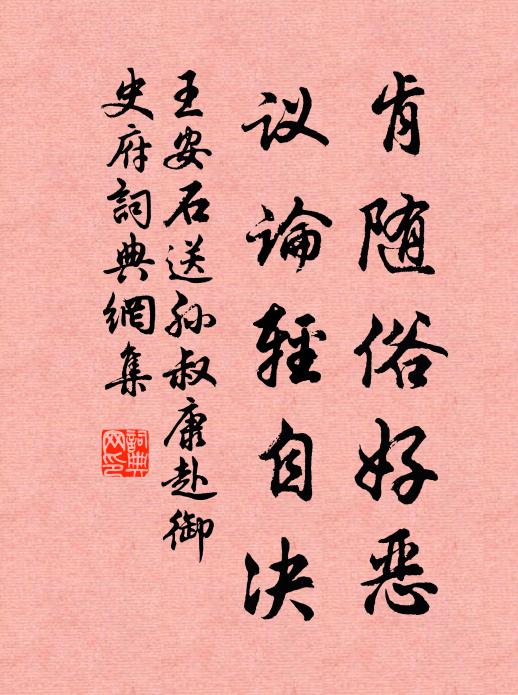 肯随俗好恶
议論輕自决
王安石送孙叔康赴御
史府詞典網集
詞典
网印